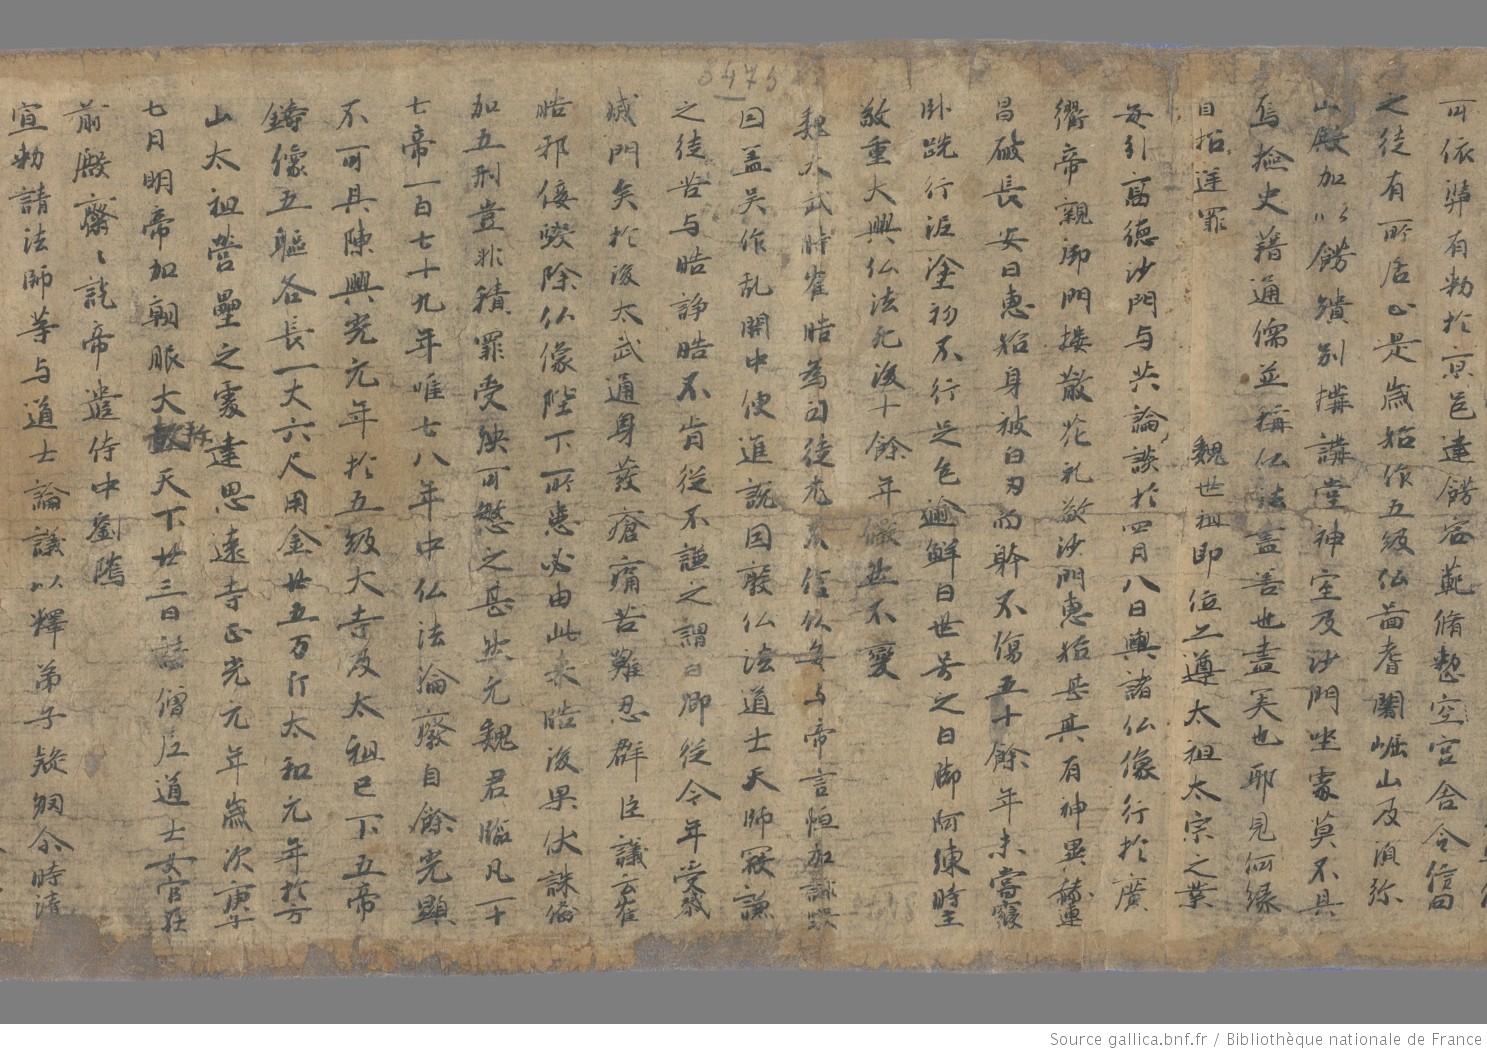 可依準有勅於京邑建餝容範脩整空宮舍令信向
之徒有所居止是歳始作五級仏啚耆闍崛山及湏弥
山殿加以餝繢別搆講堂神室及沙門坐處莫不具
焉撿史藉通儒並稱仏法言善也盡矣也耶見何縁
自招逆罪 魏世祖即位之遵太祖太宗之業
每引高德沙門与共論談於四月八日輿諸仏像行於廣
衢帝親御門楼散花礼敬沙門惠始甚其有神異赫連
昌破長安日惠始身被白刃而躰不傷五十餘年未甞寢
卧跣行泥塗初不行足色逾鮮日世号之曰脚阿練時
敬重大興仏法死後十餘年儼然不變
魏太武時崔晧為司徒尤不信仏每与帝言恒加誹
因盖吴作乱開中使進說因毀仏法道士天師寇謙
之徒苦与晧諍晧不肯從不謙之謂曰卿從今年受
戚門矣於後太武通身發瘡痛苦難忍群臣議云崔
晧邪佞暌除仏像陛下所患必由此来晧後果伏誅
加五刑豈非積罪受殃可愍之甚然元魏君臨凡一十
七帝一百七十九年唯七八年中仏法淪癈自餘光顯
不可具陳興光元年於五級大寺及太祖已下五帝
鑄像五軀各長一丈六尺用金廿五万斤太和元年於方
山太祖營壘之處建思遠寺正光元年歳次庚
七月明帝加朝服大赦天下廿三日請僧尼道士女官在
前殿齋〻訖帝遣侍中劉騰
宣勅請法師等与道士論議以釋弟子疑網令時清
5475
Source gallica.bnf.fr / Bibliothèque nationale de France